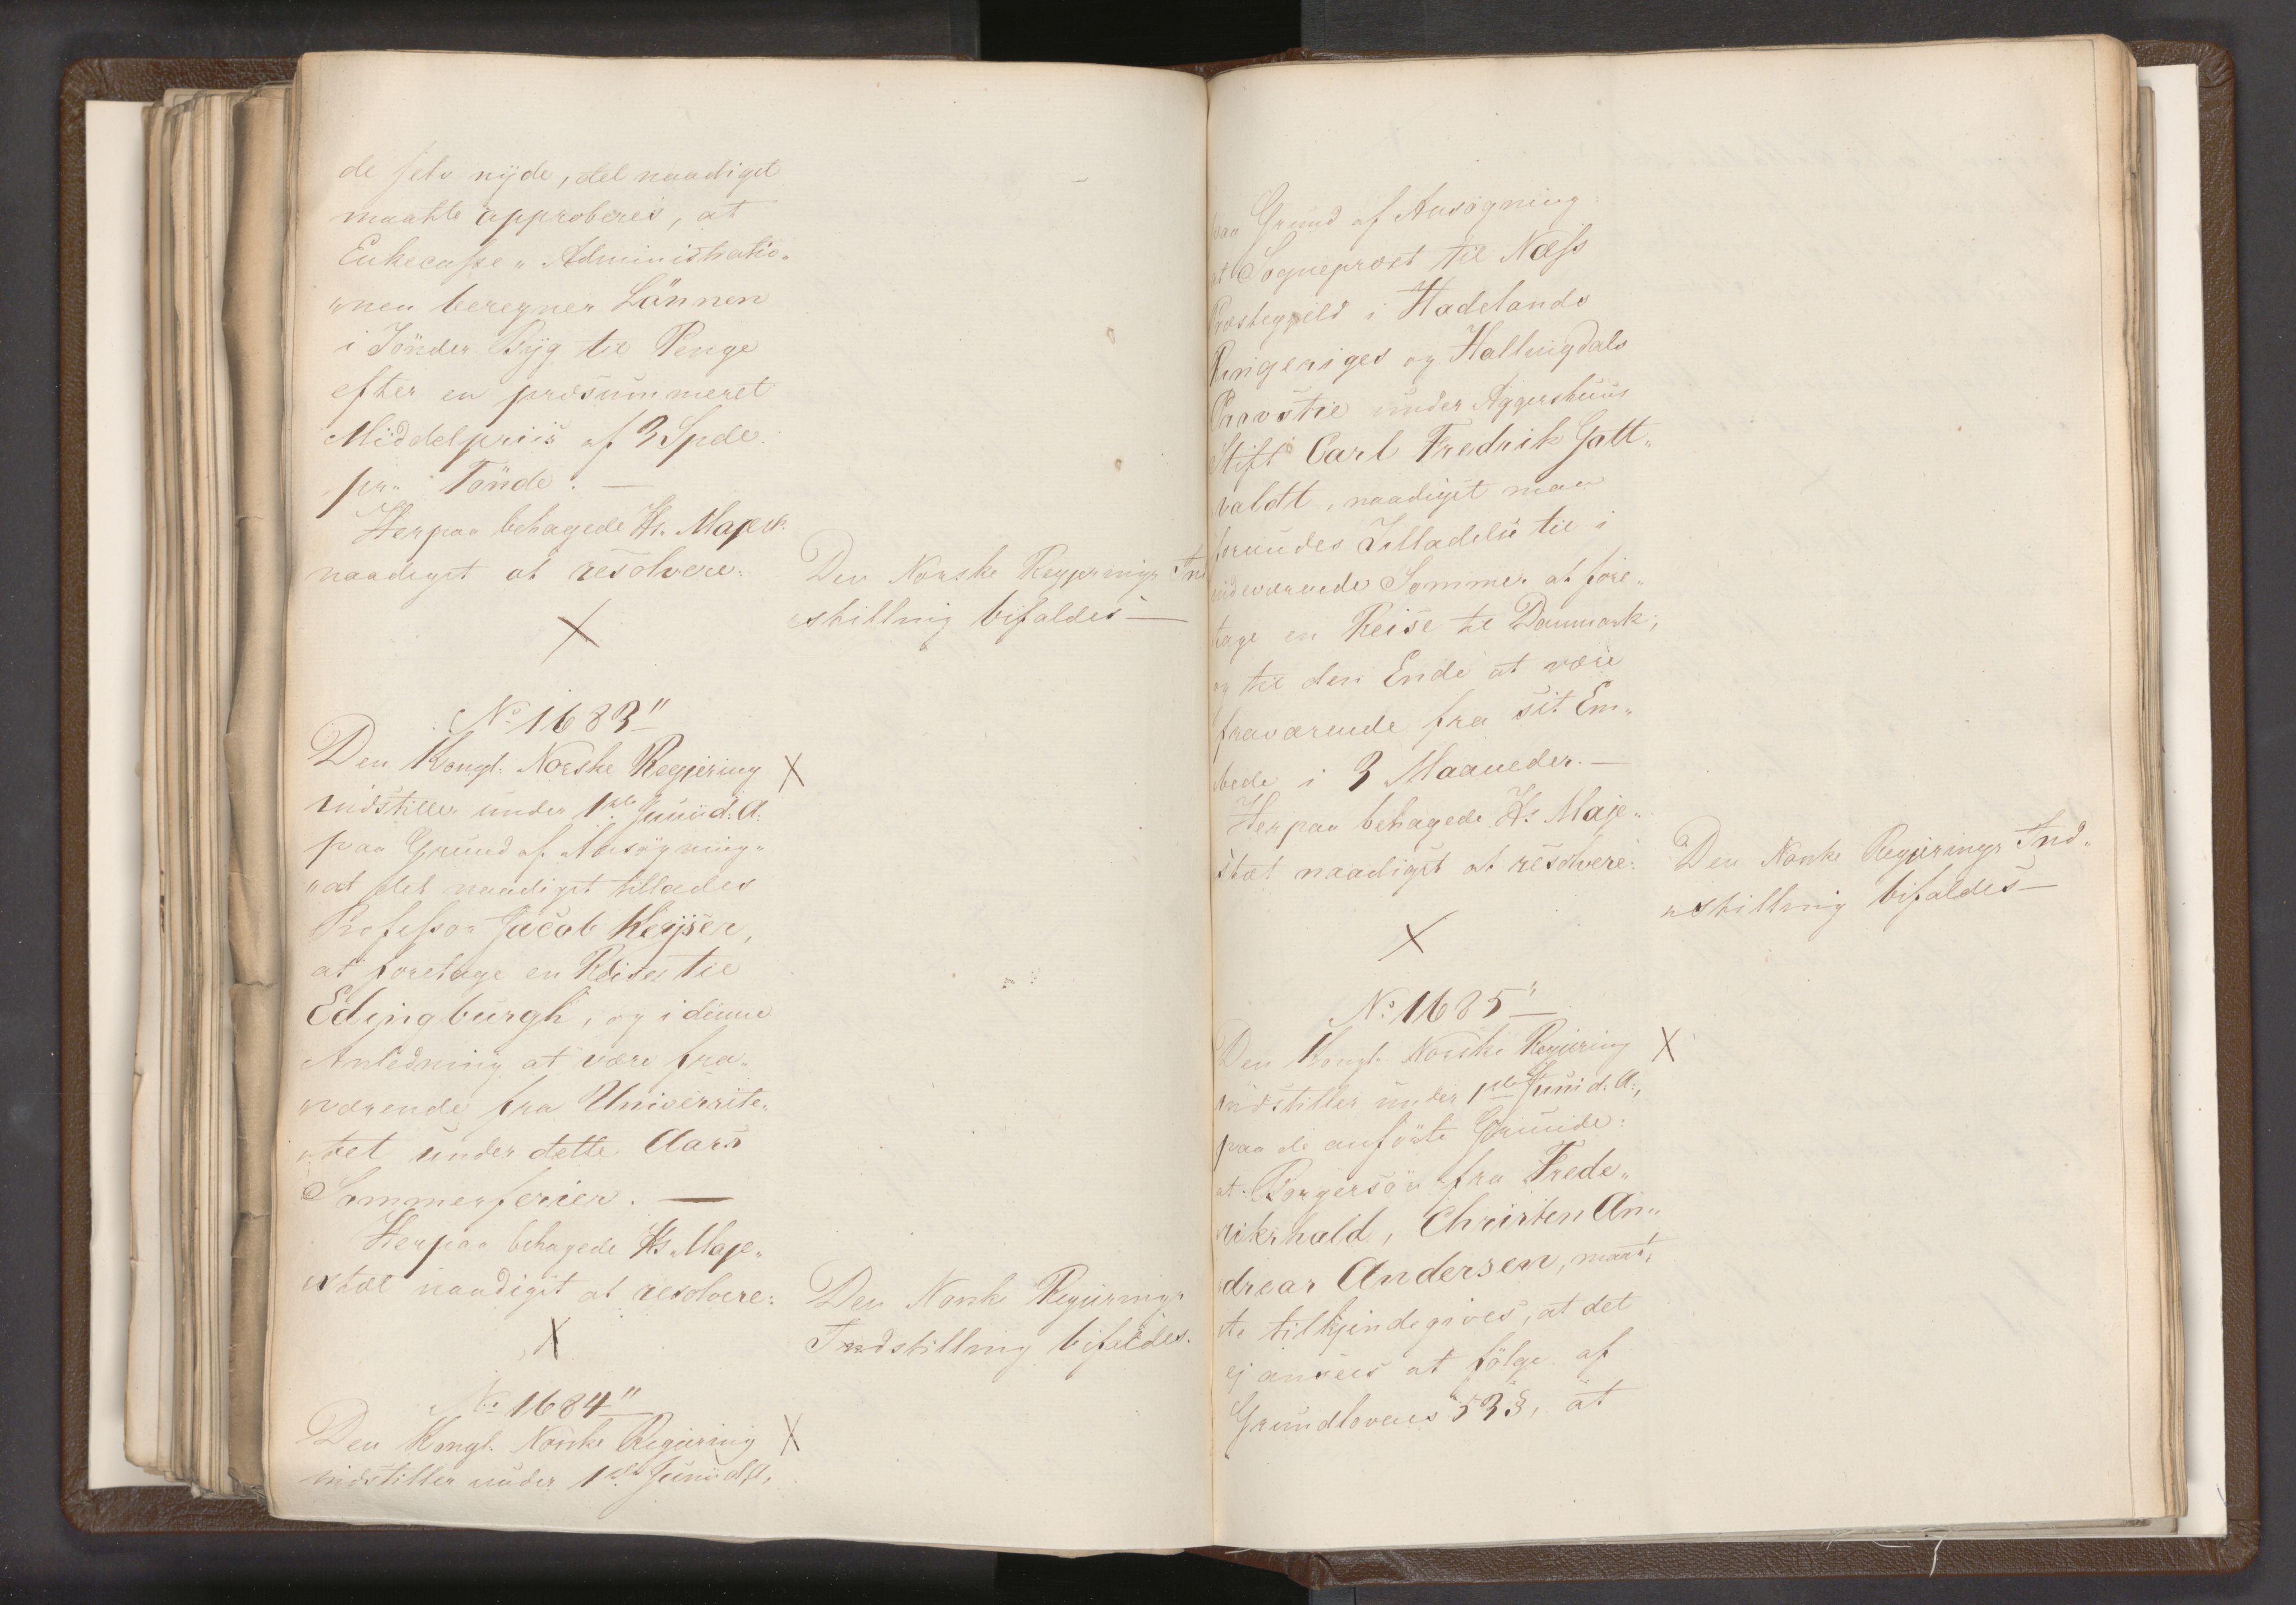 de selv nÿde, del naadigst
maatte approberes, at
Enkecasse„ Administratio„
„nen beregner Lönnen
i Tönder Bÿg til Penge
efter en præsummeret
Middelpriis af 3 Spdr.
pr. Tönde. —
Herpaa behagede Hs. Majest.
naadigst at resolvere:
Den Norske Regjerings Ind
„stilling bifaldes —
X
No 1683"
Den Kongl. Norske Regjering X
indstiller under 1ste Junii d. A.
paa Grund af Ansögning„
„at det naadigst tillades
Professor Jacob Keÿser,
at foretage en Reise til
Edingburgh, og i denne
Anledning at være fra„
„værende fra Universite„
„tet under dette Aars
Sommerferier. —
Herpaa behagede Hs. Maje„
„stæt naadigst at resolvere:
Den Norske Regjerings
Indstilling bifaldes.
X
No 1684"
Den Kongl. Norske Regjering X
indstiller under 1ste Junii d. A.
paa Grund af Ansögning:
at Sogneprest til Næss
Præstegjeld i Hadelands
Ringeriges og Hallingdals
Provstie under Aggershuus
Stift Carl Fredrik Gott„
valdt, naadigst maa
forundes Tilladelse til i
indeværende Sommer at fore„
tage en Reise til Danmark;
og til den Ende at være
fraværende fra sit Em„
bede i 3 Maaneder. —
Herpaa behagede Hs. Maje„
stæt naadigst at resolvere:
Den Norske Regjerings Ind„
„stilling bifaldes —
X
No 1685"
Den Kongl. Norske Regjering X
indstiller under 1ste Junii d. A.,
paa de anförte Grunde:
at Borgersön fra Frede„
rikshald, Christen An„
dreas Andersen, maat„
te tilkjendegives, at det
ej ansees at fölge af
Grundlovens 53 §, at